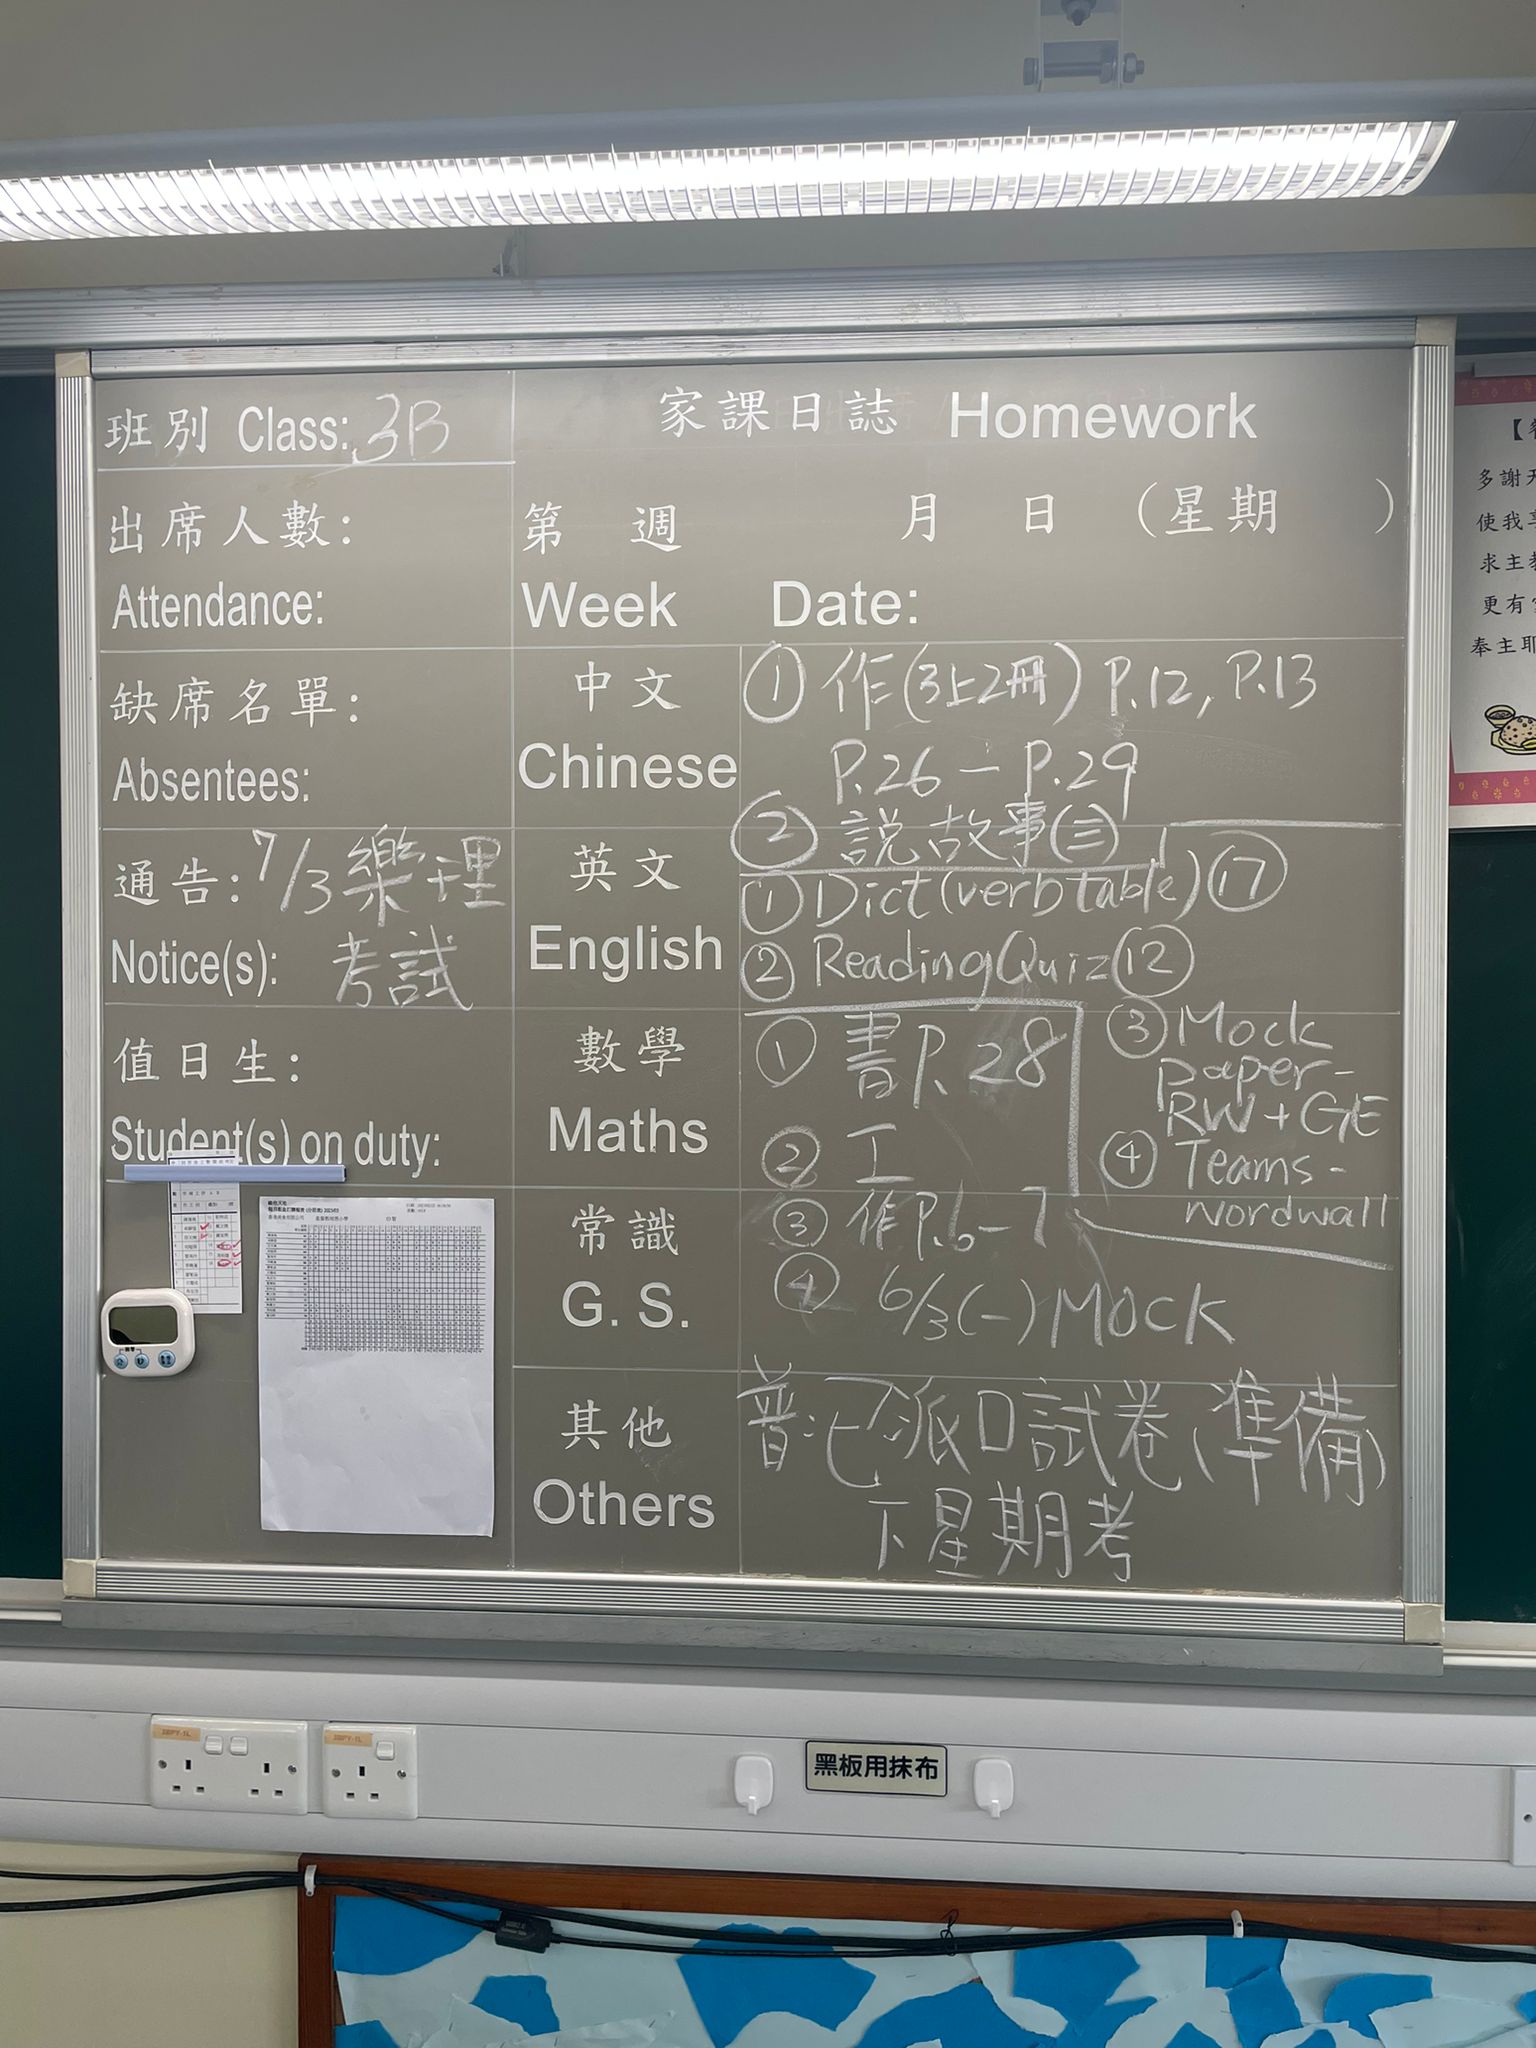 班別 Class: 3B
家課日誌 Homework
出席人數:
Attendance:
第 週 月 日 (星期 )
Week Date:
缺席名單:
Absentees:
中文
Chinese
① 作(3上2冊) P.12, P.13
P.26 - P.29
② 說故事(三)
通告: 7/3 樂理
Notice(s): 考試
英文
English
① Dict(verb table) ⑰
② Reading Quiz ⑫
③ Mock
paper-
RW+GE
④ Teams-
wordwall
值日生:
Student(s) on duty:
數學
Maths
① 書P.28
② 工
③ 作P.6-7
④ 6/3(一) MOCK
常識
G. S.
其他
Others
普:已派口試卷(準備)
下星期考
多謝天
使我享
求主教
更有
奉主耶
黑板用抹布